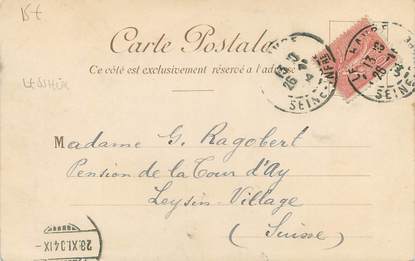 Carte Postale
Ce côté est exclusivement réservé à l'adresse
LE HAVRE
SEINE-INFRE
Madame G. Ragobert
Pension de la Cour d'Ay
Leysin-Village
(Suisse)
28.XI.04 IX-